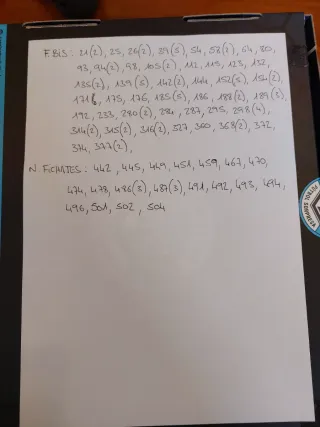 F. BIS: 21(2), 25, 26(2), 39(5), 54, 58(2), 64, 80,
93, 94(2), 98, 105(2), 112, 119, 123, 132,
135(2), 139(5), 142(2), 144, 152(5), 154(2),
171, 175, 176, 185(5), 186, 188(2), 189(3),
192, 233, 280(2), 284, 287, 295, 298(4),
314(2), 315(2), 316(2), 327, 360, 368(2), 372,
374, 377(2),
N. FICHANTES: 442, 445, 449, 451, 459, 467, 470,
474, 478, 486(3), 487(3), 491, 492, 493, 494,
496, 501, 502, 504